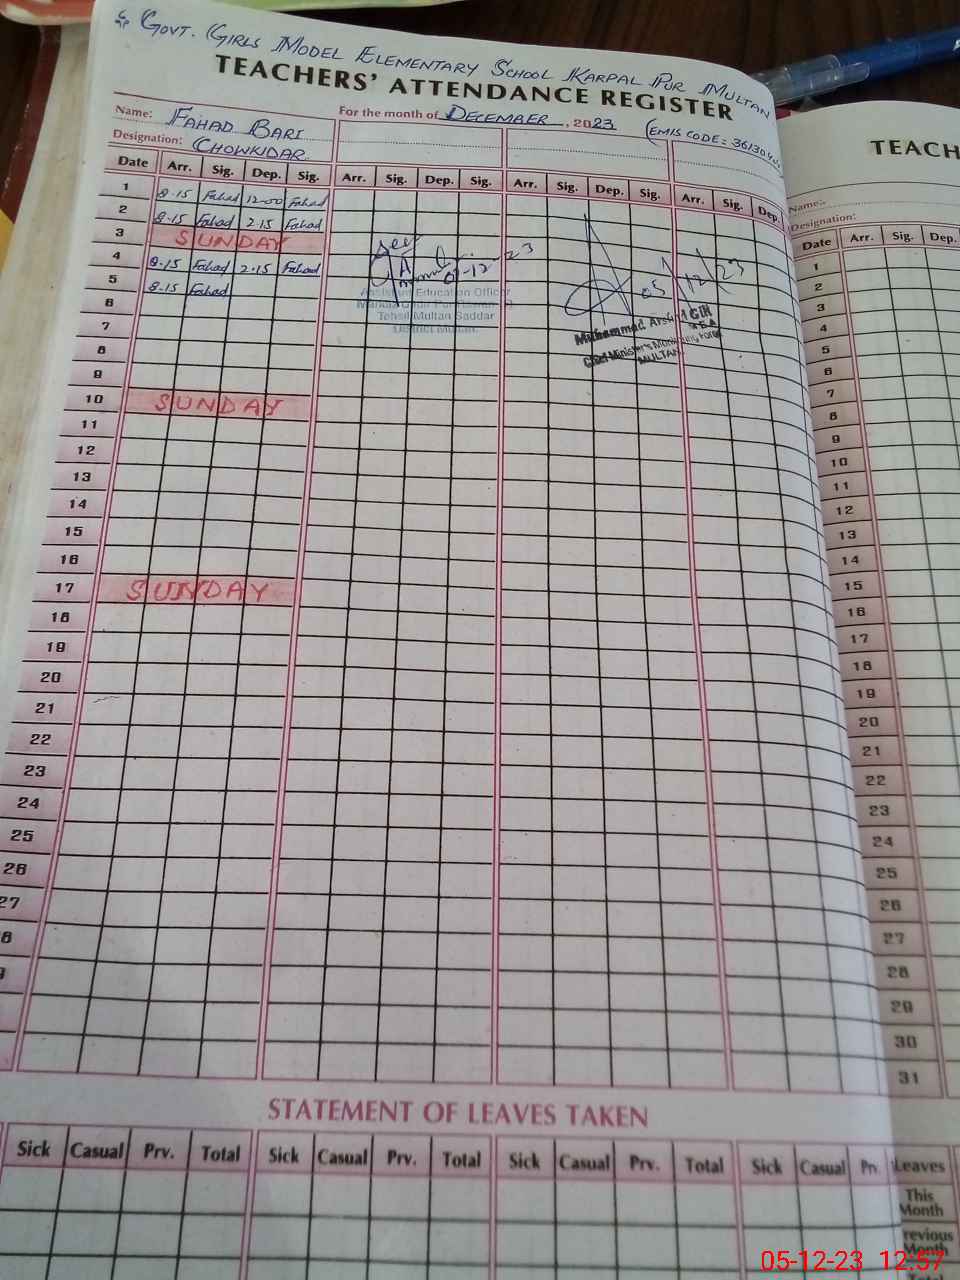 GOVT. GIRLS MODEL ELEMENTARY SCHOOL KARPAL PUR MULTAN
TEACHERS' ATTENDANCE REGISTER
Name: FAHAD BARI
For the month of DECEMBER, 2023
(EMIS CODE = 36130
Designation: CHOWKIDAR
Date Arr. Sig. Dep. Sig. Arr. Sig. Dep. Sig. Arr. Sig. Dep. Sig. Arr. Sig. Dep.
1 8.15 Fahad 12-00 Fahad
2 8.15 Fahad 2.15 Fahad
3 SUNDAY
4 8.15 Fahad 2.15 Fahad
5 8.15 Fahad
6
7
8
9
10 SUNDAY
11
12
13
14
15
16
17 SUNDAY
18
19
20
21
22
23
24
25
26
27
8
9
Assistant Education Officer
Tehsil Multan Saddar
District Multan.
05/12/23
Muhammad
Chief Minister's Monitoring Force
MULTAN
STATEMENT OF LEAVES TAKEN
Sick Casual Prv. Total Sick Casual Prv. Total Sick Casual Prv. Total Sick Casual Prv.
TEACH
Name:
Designation:
Date Arr. Sig. Dep.
1
2
3
4
5
6
7
8
9
10
11
12
13
14
15
16
17
18
19
20
21
22
23
24
25
26
27
28
29
30
31
Leaves
This
Month
revious
Month
05-12-23 12:57